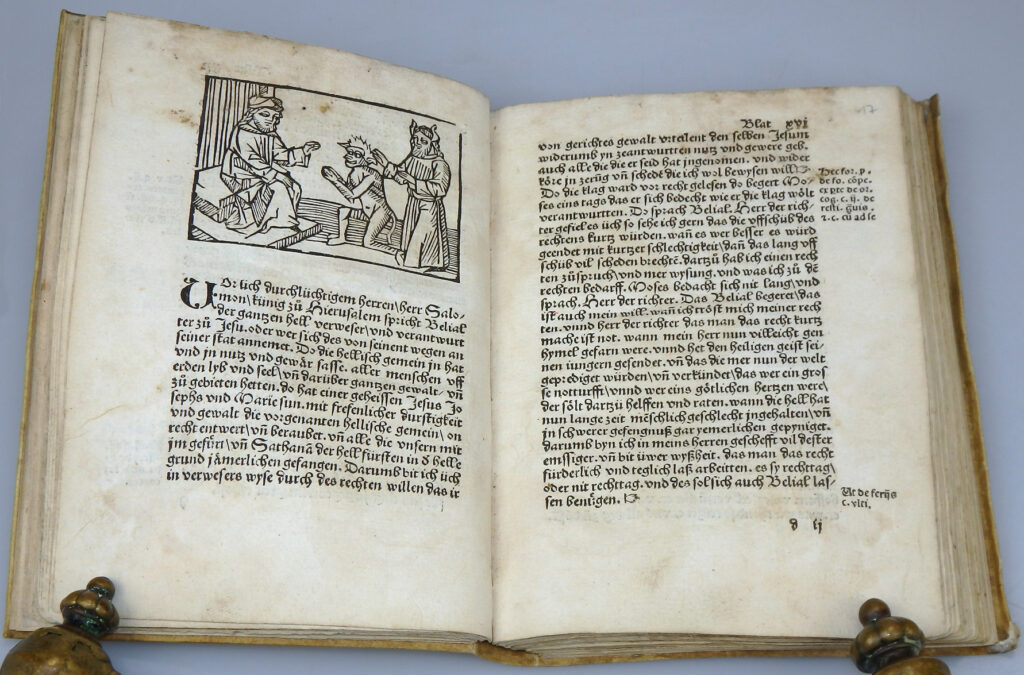 Vor üch durchlüchtigem herren/herr Salo-
mon/künig zů Hierusalem spricht Belial
der gantzen hell verweser/vnd verantwurt
ter zů Jesu. oder wer sich des von seinent wegen an
seiner stat annemet. Do die hellisch gemein jn hat
vnd jn nutz vnd gewär sasse. aller menschen vff
erden lyb vnd seel/vñ darüber gantzen gewalt. vñ
zů gebieten hetten. do hat einer geheissen Jesus Jo
sephs vnd Marie sun. mit frefenlicher durstigkeit
vnd gewalt die vorgenanten hellische gemein/on
recht entwert/vñ beraubet. vñ alle die vnsern mit
jm gefürt/vñ Sathanã der hell fürsten in d helle
grund jämerlichen gefangen. Darumb bit ich üch
in verwesers wyse durch des rechten willen das ir
Blat xvj
17
von gerichtes gewalt vrteilent den selben Jesum
widerumb yn zeantwurtten nutz vnd gewere geb.
auch alle die die er seid hat jngenomen. vnd wider
köre jn zerüg vñ schede die ich wol bewysen will
Do die klag ward vor recht gelesen do begert Mo-
ses eins tags das er sich bedecht wie er die klag wölt
verantwurtten. Do sprach Belial. Herr der rich/
ter gefiel es üch so sehe ich gern das die vffschüb des
rechtens kurtz würden. wañ es wer besser es würd
geendet mit kurtzer schlechtigkeit/dañ das lang vff
schüb vil scheden brechtẽ. dartzů hab ich einen rech
ten zůspruch/vnd mer wysung. vnd was ich zů dẽ
rechten bedarff. Moses bedacht sich nit lang/vnd
sprach. Herr der richter. Das Belial begeret/das
ist auch mein will. wañ ich tröst mich meiner rech
ten. vnnd herr der richter das man das recht kurtz
mache ist not. wann mein herr nun villeicht gen
hymel gefarn were. vnnd het den heiligen geist sei-
nen iungern gesendet. vñ das die mer nun der welt
geprediget würden/vñ verkündet/das wer ein gros
se notturfft/vnnd wer eins götlichen hertzen were/
der sölt dartzů helffen vnd raten. wann die hell hat
nun lange zeit mẽschlich geschlecht jngehalten/vñ
jn schwerer gefengnuß gar yemerlichen gepyniget.
darumb byn ich in meins herren gescheft vil dester
emssiger. vñ bit üwer wyßheit. das man das recht
fürderlich vnd teglich laß arbeitten. es sy rechttag/
oder nit rechttag. vnd des sol sich auch Belial las-
sen benügen.
Hec for. p.
de fo. cõpe.
er pte de or.
cog. c. ij. de
resti. spolia.
z. c. cũ ad se
Ut de ferijs
c. vlti.
d ij